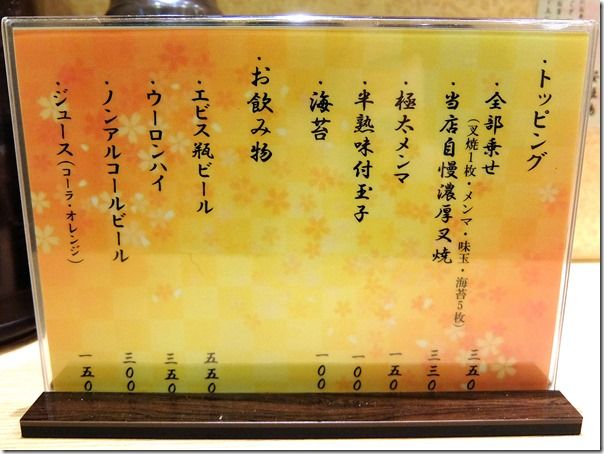 ・トッピング
・全部乗せ 三五〇
(叉焼1枚・メンマ・味玉・海苔5枚)
・当店自慢濃厚叉焼 三三〇
・極太メンマ 一五〇
・半熟味付玉子 一〇〇
・海苔 一〇〇
・お飲み物
・エビス瓶ビール 五五〇
・ウーロンハイ 三五〇
・ノンアルコールビール 三〇〇
・ジュース(コーラ・オレンジ) 一五〇